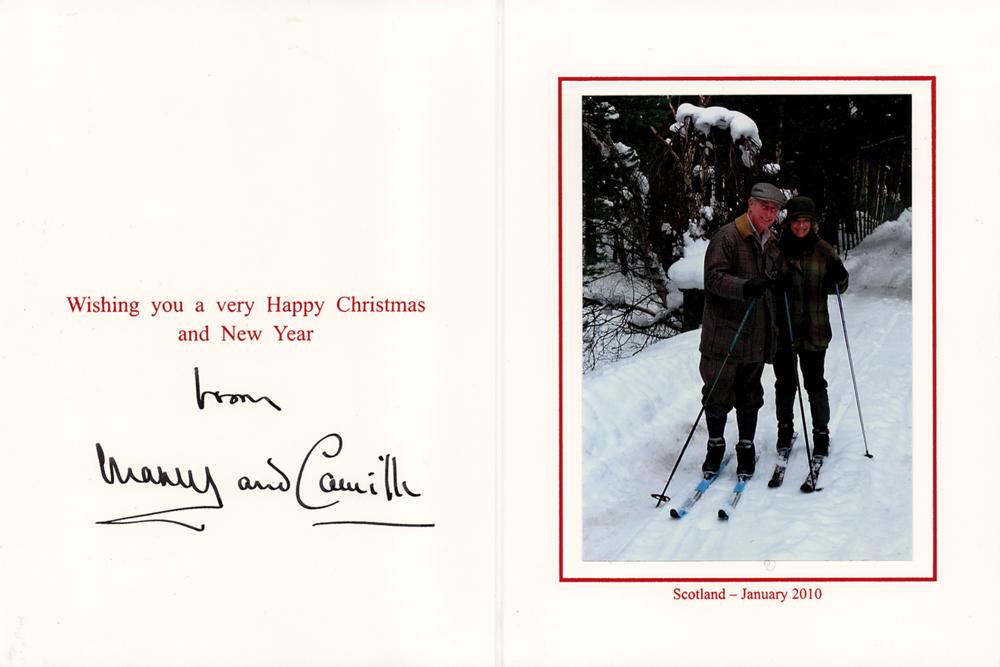 Wishing you a very Happy Christmas
and New Year
from
Charles and Camilla
Scotland – January 2010